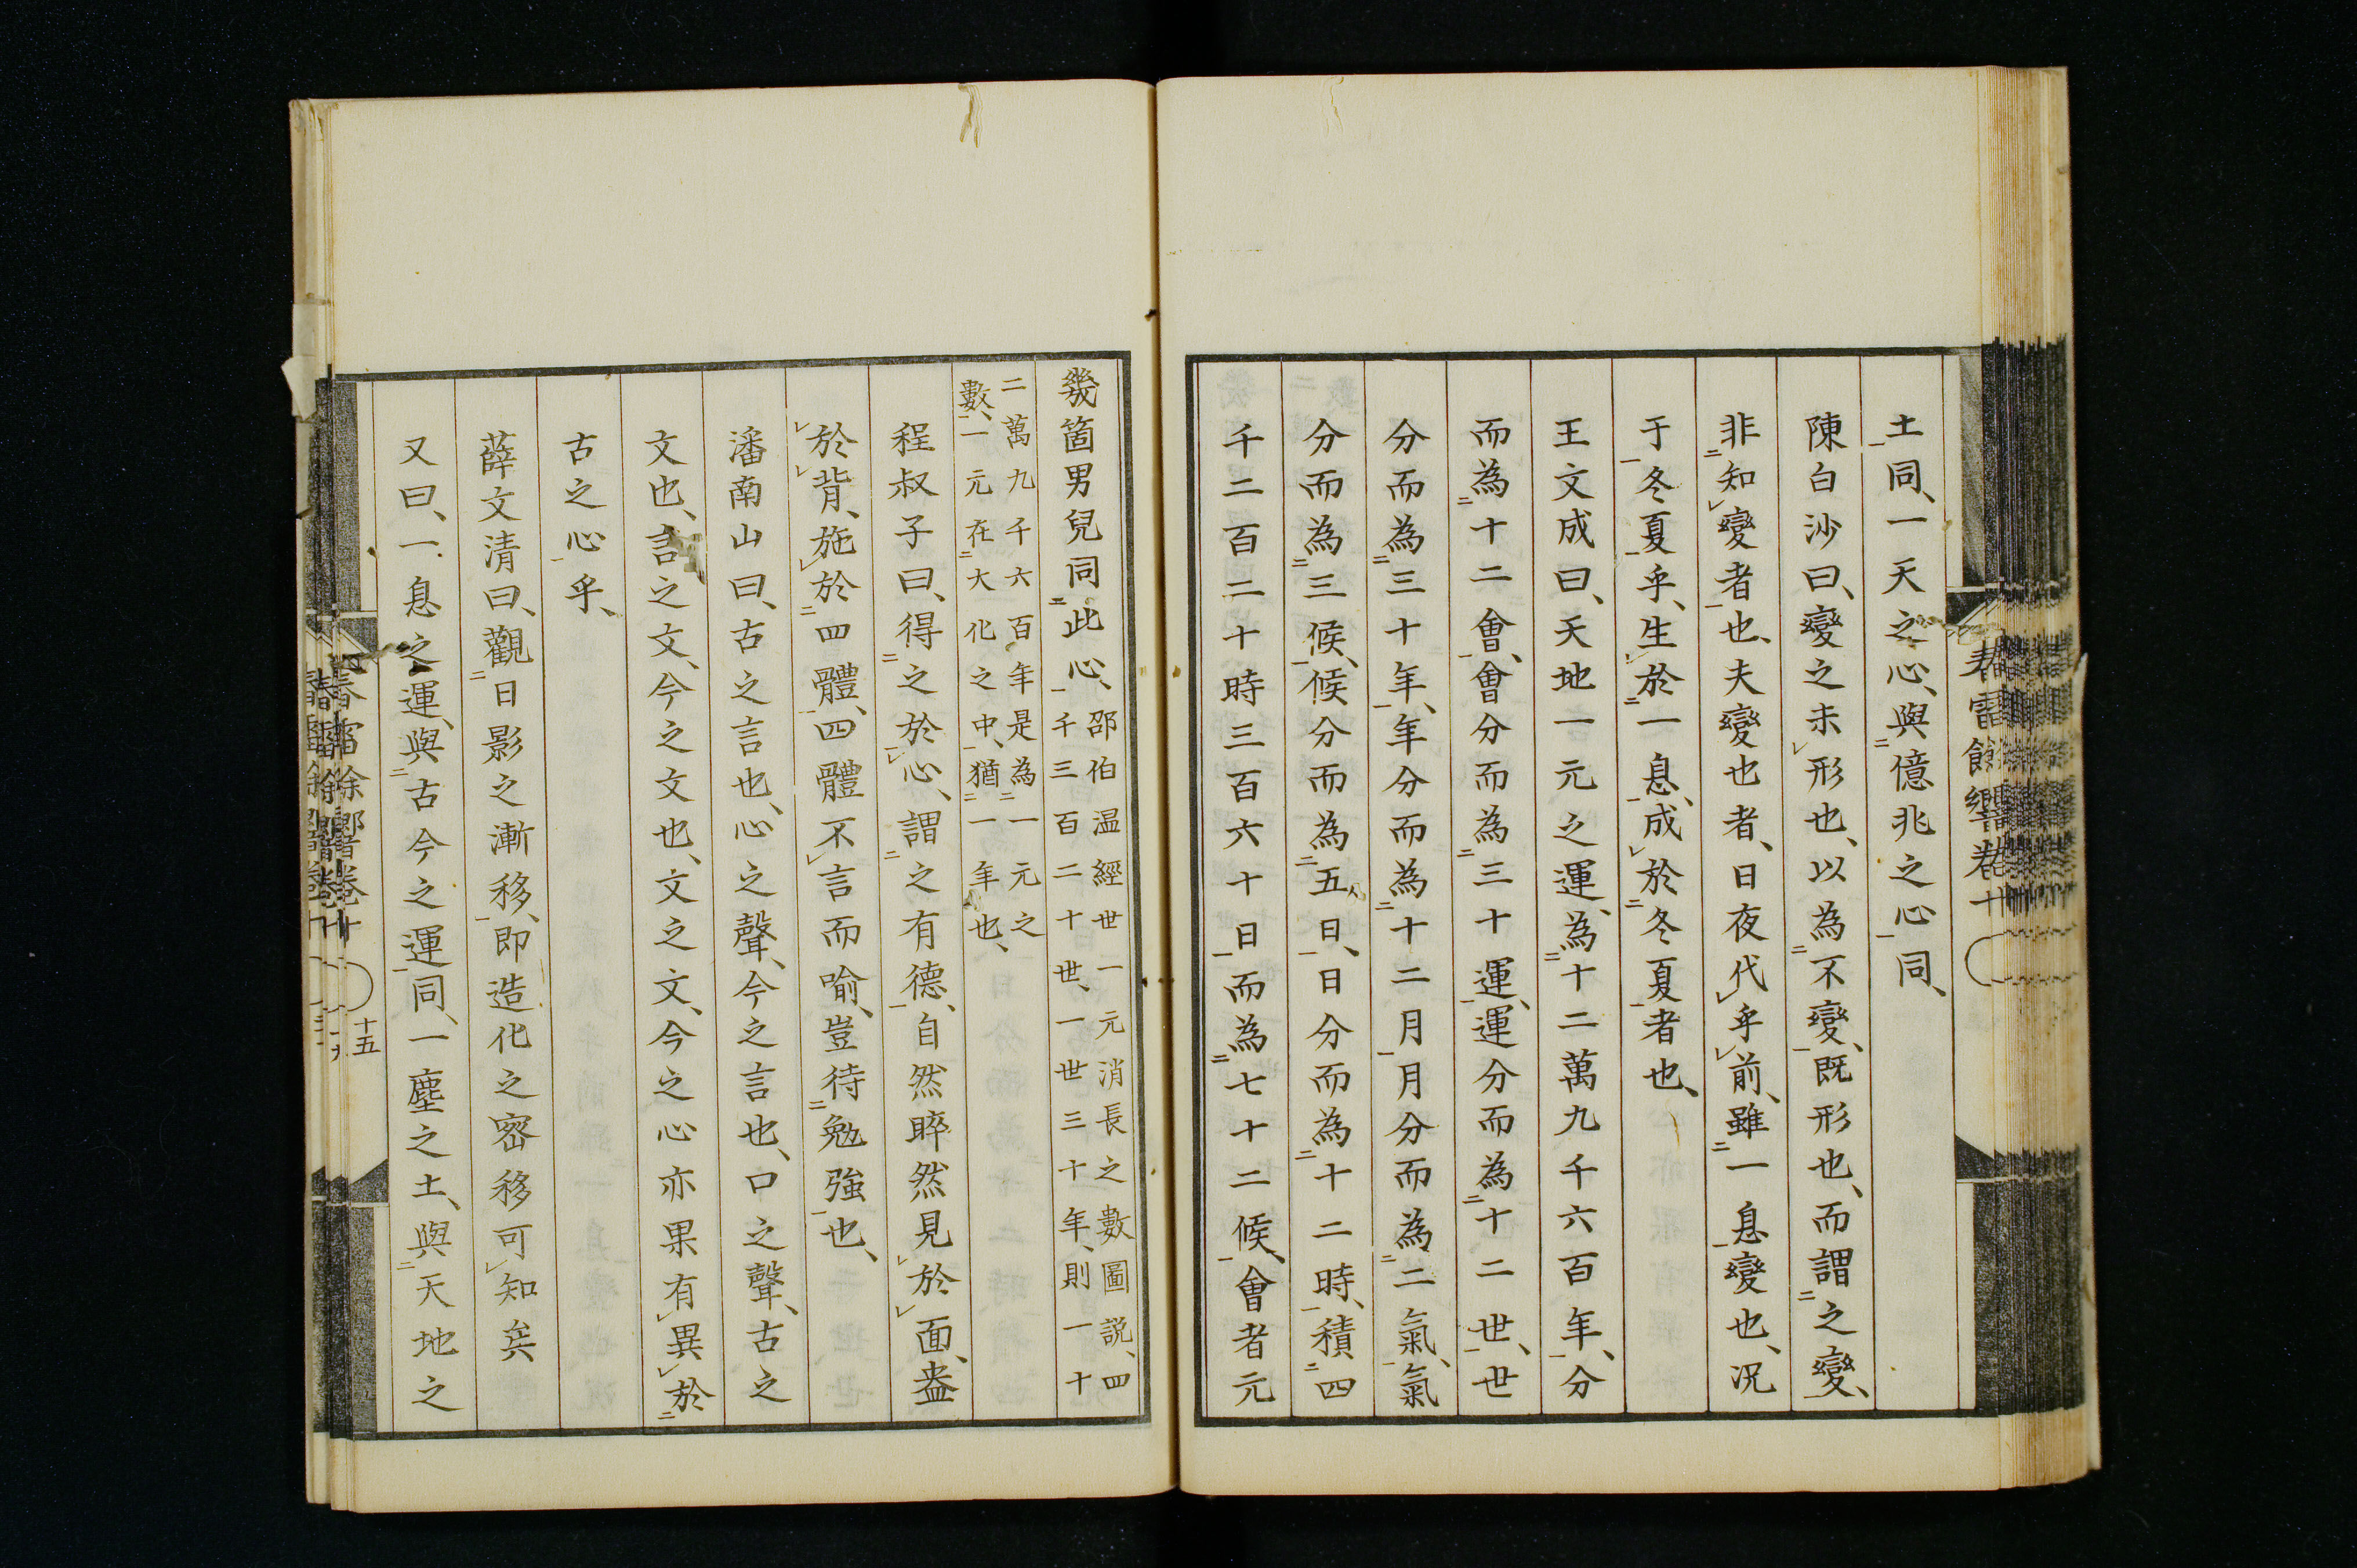 土同、一天之心、與億兆之心同、
陳白沙曰、變之未形也、以為不變、既形也、而謂之變、
非知變者也、夫變也者、日夜代乎前、雖一息變也、况
于冬夏乎、生於一息、成於冬夏者也、
王文成曰、天地一元之運、為十二萬九千六百年、分
而為十二會、會分而為三十運、運分而為十二世、世
分而為三十年、年分而為十二月、月分而為二氣、氣
分而為三候、候分而為五日、日分而為十二時、積四
千二百二十時三百六十日而為七十二候、會者元
幾箇男兒同此心、邵伯温經世一元消長之數圖説、四
千三百二十世、一世三十年、則一十
二萬九千六百年是為一元之
數、一元在大化之中、猶一年也、
程叔子曰、得之於心、謂之有德、自然睟然見於面、盎
於背、施於四體、四體不言而喻、豈待勉強也、
潘南山曰、古之言也、心之聲、今之言也、口之聲、古之
文也、言之文、今之文也、文之文、今之心亦果有異於
古之心乎、
薛文清曰、觀日影之漸移、即造化之密移可知矣
又曰、一息之運、與古今之運同、一塵之土、與天地之
春雷餘響卷十
十五